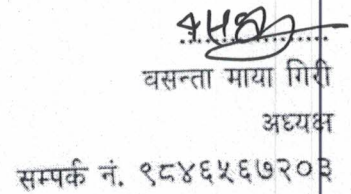 वसन्ता माया गिरी
अध्यक्ष
सम्पर्क नं. ९८४६५६७२०३